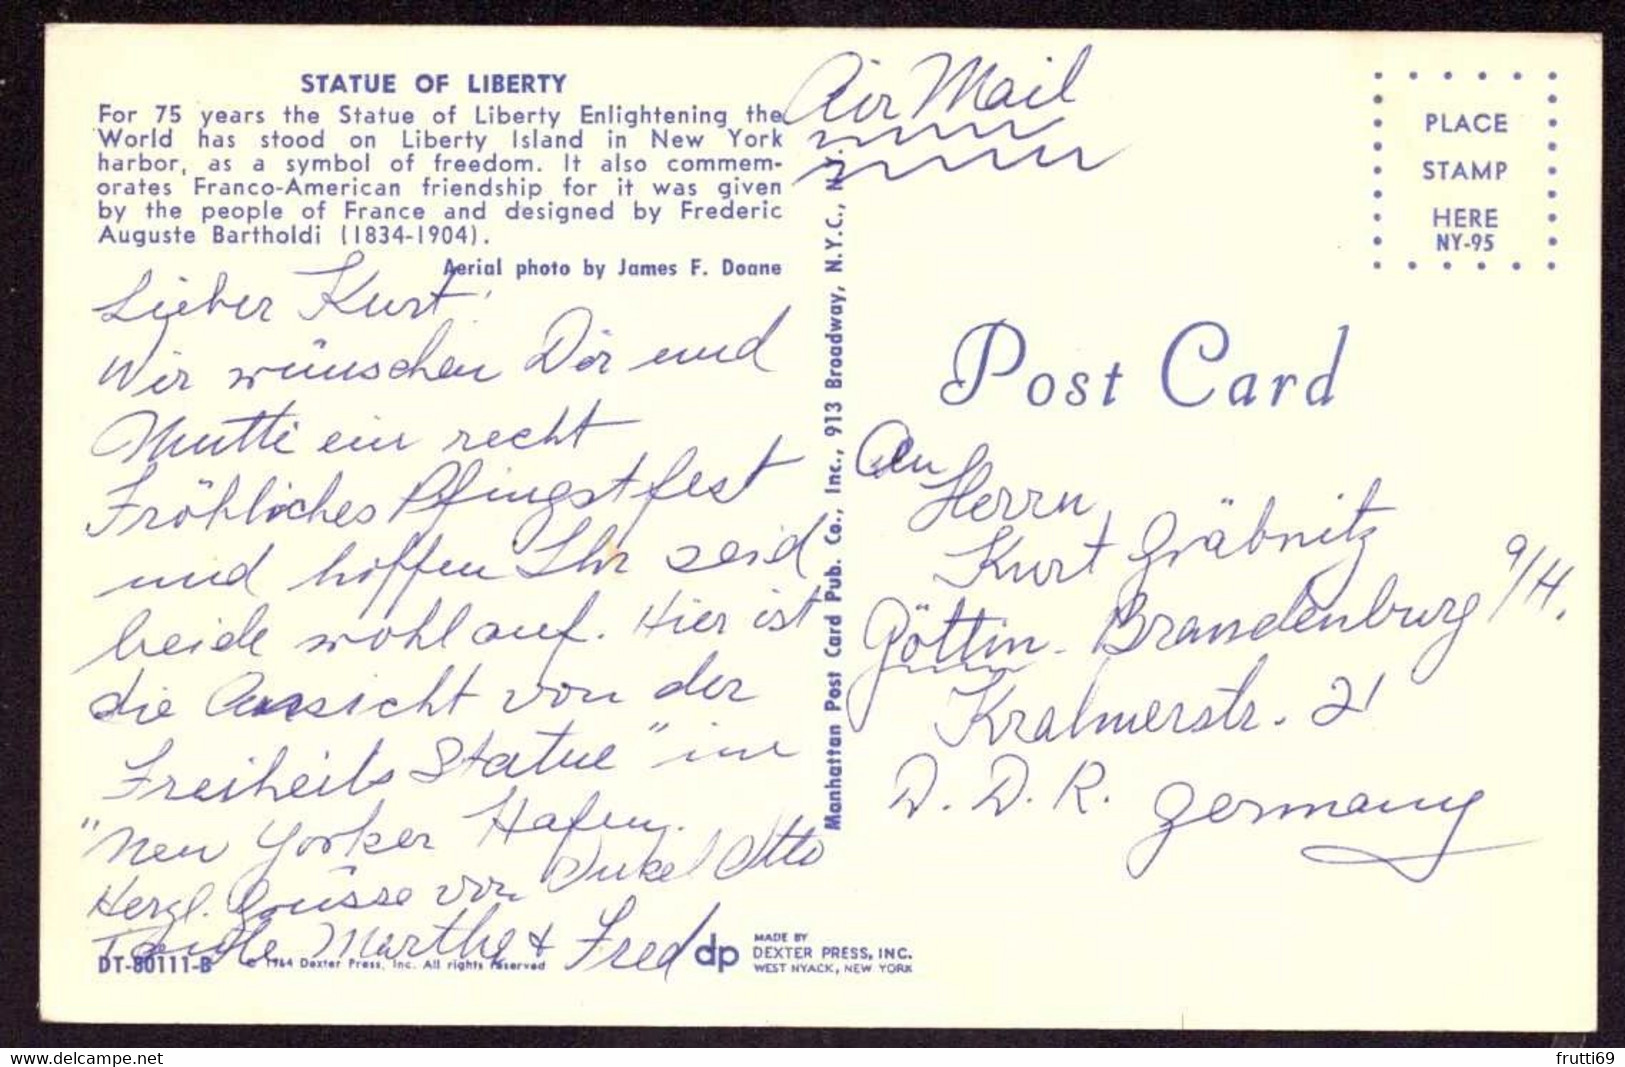 STATUE OF LIBERTY
For 75 years the Statue of Liberty Enlightening the
World has stood on Liberty Island in New York
harbor, as a symbol of freedom. It also commem-
orates Franco-American friendship for it was given
by the people of France and designed by Frederic
Auguste Bartholdi (1834-1904).
Aerial photo by James F. Doane
Lieber Kurt!
Wir wünschen Dir und
Mutti ein recht
Fröhliches Pfingstfest
und hoffen Ihr seid
beide wohlauf. Hier ist
die Aussicht von der
Freiheits Statue" im
"New Yorker Hafen.
Herzl. Grüsse von Onkel Otto
Tante Marthe & Fred
DT-80111-B © 1964 Dexter Press, Inc. All rights reserved
dp MADE BY
DEXTER PRESS, INC.
WEST NYACK, NEW YORK
Manhattan Post Card Pub. Co., Inc., 913 Broadway, N.Y.C., N.
Air Mail
PLACE
STAMP
HERE
NY-95
Post Card
An
Herrn
Kurt Gräbnitz
Göttin - Brandenburg a/H.
Kralmerstr. 21
D. D. R. Germany
frutti69
delcampe.net